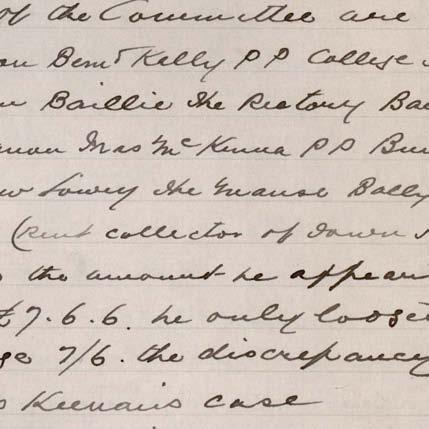 of the Committee are
on Bernd Kelly P P College
Baillie The Rectory Ba
anon Thos McKenna P P Bu
Lowry The Manse Bally
(Rent collector of Down
the amount he appear
£7.6.6. he only loose
7/6. the discrepancy
Keenan's case